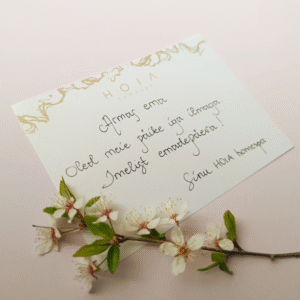 HOIA
Armas ema
Oled meie päike iga ilmaga
Imelist emadepäeva!
Sinu HOIA homespa